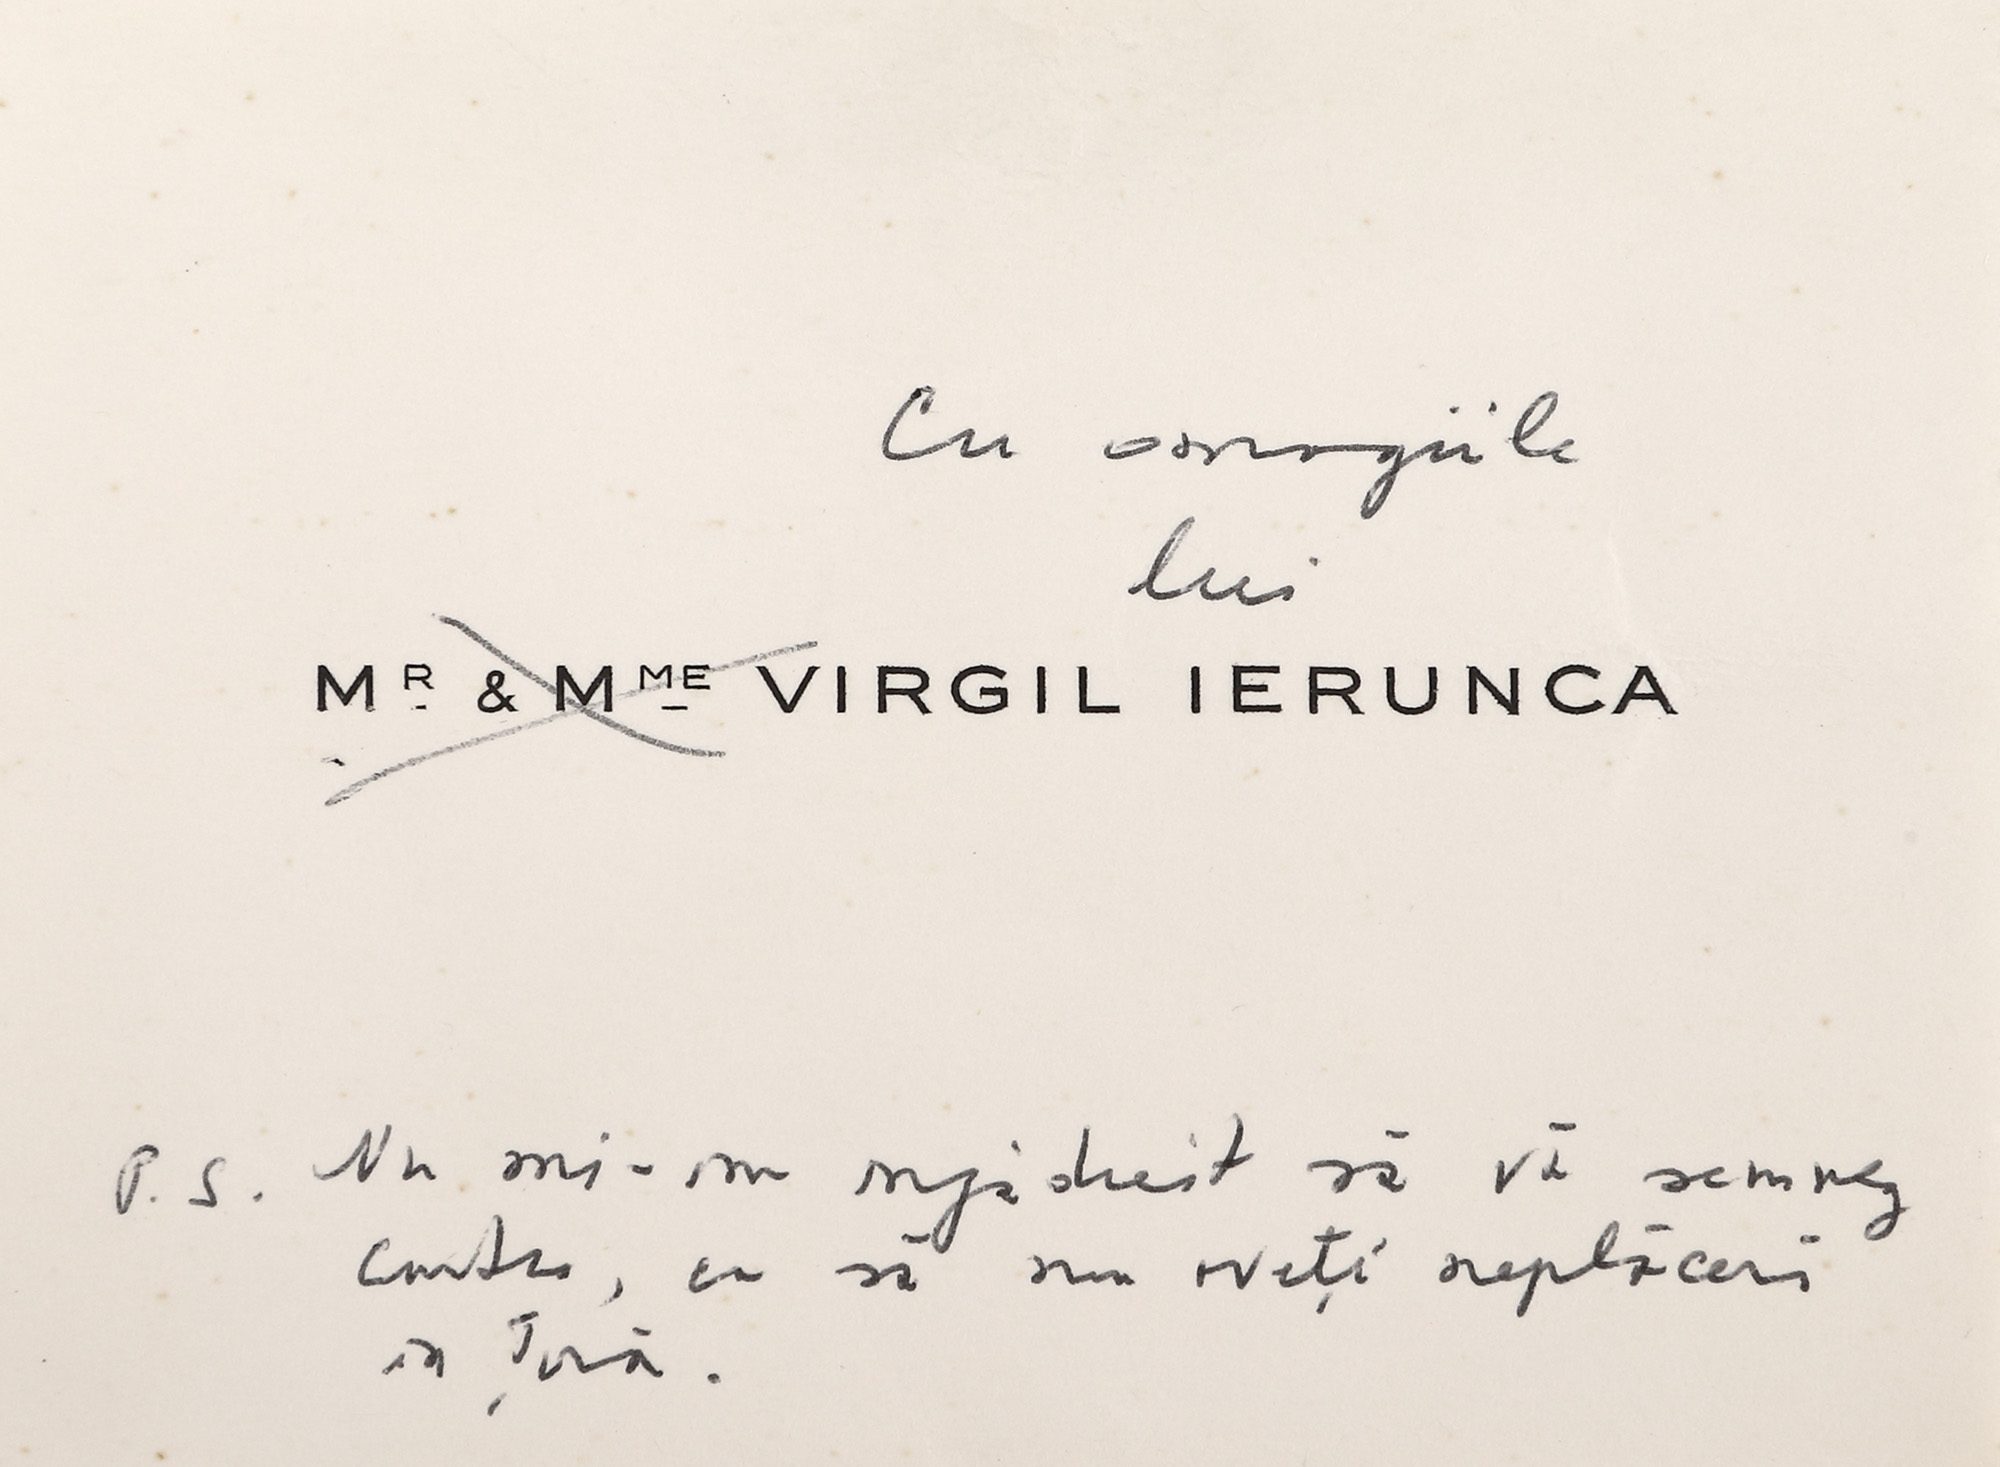 Cu omagiile
lui
MR & MME VIRGIL IERUNCA
P.S. Nu mi-am ngăduit să vă semnez
cartea, ca să nu aveți neplăceri
in Țară.